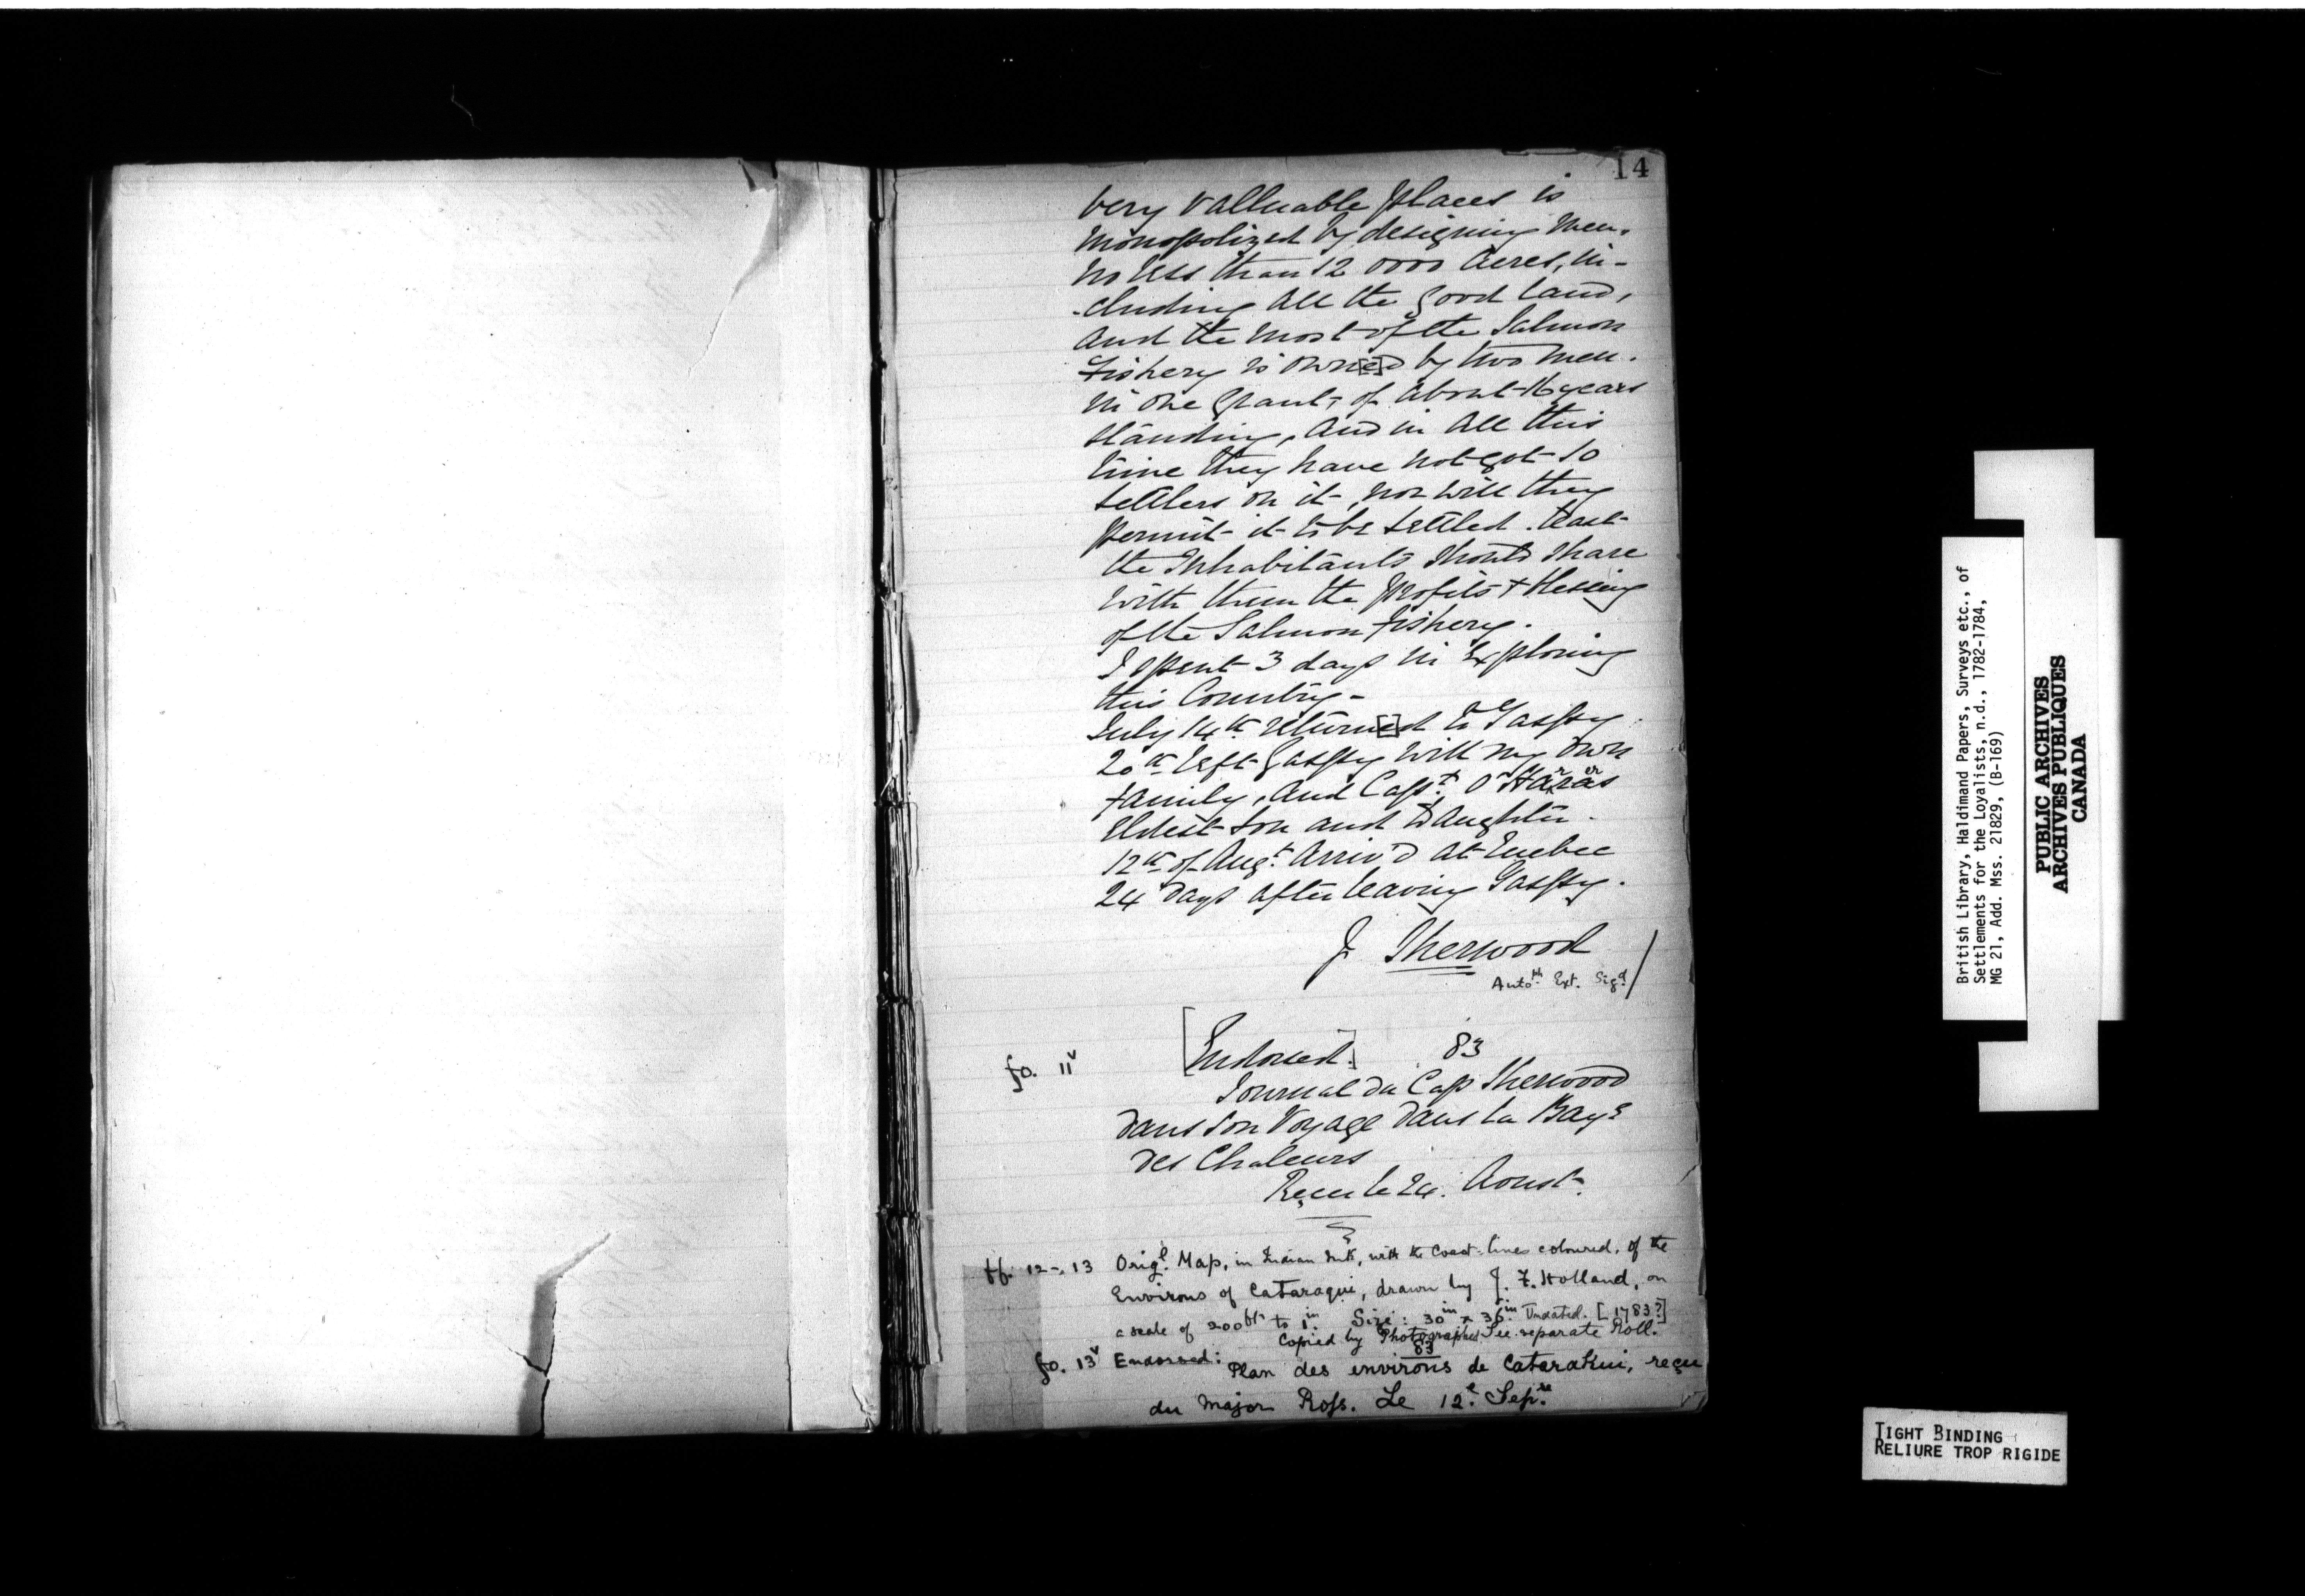 14
very valluable places is
monopolized by designing men,
no less than 12 0000 Acres, in-
-cluding all the good land,
and the most of the Salmon
Fishery is own[e]d by two men.
in one grant, of about 16 years
standing, and in all this
time they have not got 10
settlers on it, nor will they
permit it to be settled. least
the Inhabitants should share
with them the profits & blessing
of the Salmon fishery.
I spent 3 days in Exploring
this Country -
July 14th return[e]d to Gaspy.
20th left Gaspy with my own
family, and Capt. O'Hara's
Eldest Son and Daughter.
12th of Augt. Arriv'd at Quebec
24 days after leaving Gaspy.
J Sherwood
Autoth. Ext. Sigd.
fo. 11v [Endorsed.] 83
Journal du Cap Sherwood
dans son Voyage dans la Baye
des Chaleurs
Reçu le 24. Aoust.
ff. 12-.13 Origl. Map, in Indian Ink, with the Coast-lines coloured, of the
Environs of Cataraqui, drawn by J. F. Holland, on
a scale of 200ft to 1in. Size: 30in x 36in. Undated. [1783?]
Copied by Photographer. See separate Roll.
83
fo. 13v Endorsed: Plan des environs de Catarakui, reçu
du Major Ross. Le 12e. Sepre.
British Library, Haldimand Papers, Surveys etc., of
Settlements for the Loyalists, n.d., 1782-1784,
MG 21, Add. Mss. 21829, (B-169)
PUBLIC ARCHIVES
ARCHIVES PUBLIQUES
CANADA
TIGHT BINDING
RELIURE TROP RIGIDE